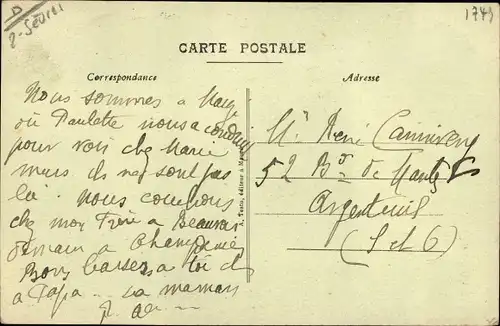 D
2-Sèvres
1741
CARTE POSTALE
Correspondance
Adresse
Nous sommes a
ou Paulette nous a conduit
pour voir chez Marie
mais ils ne sont pas
là nous couchons
chez mon frère a Beauvoir
demain a
Bons baisers a toi et
a Papa .. ta maman
Mr René
52 Bd de
Argenteuil
(S et O)
A. Texte, éditeur à